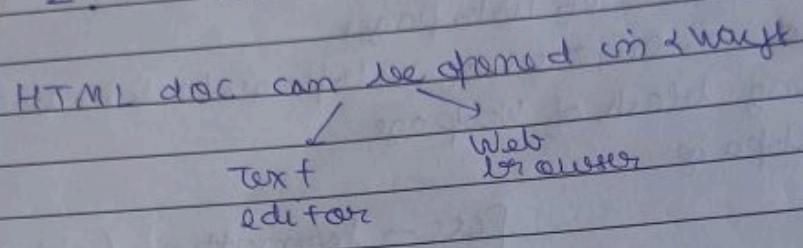 HTML doc can be opened in 2 ways
Text Web
editor browser